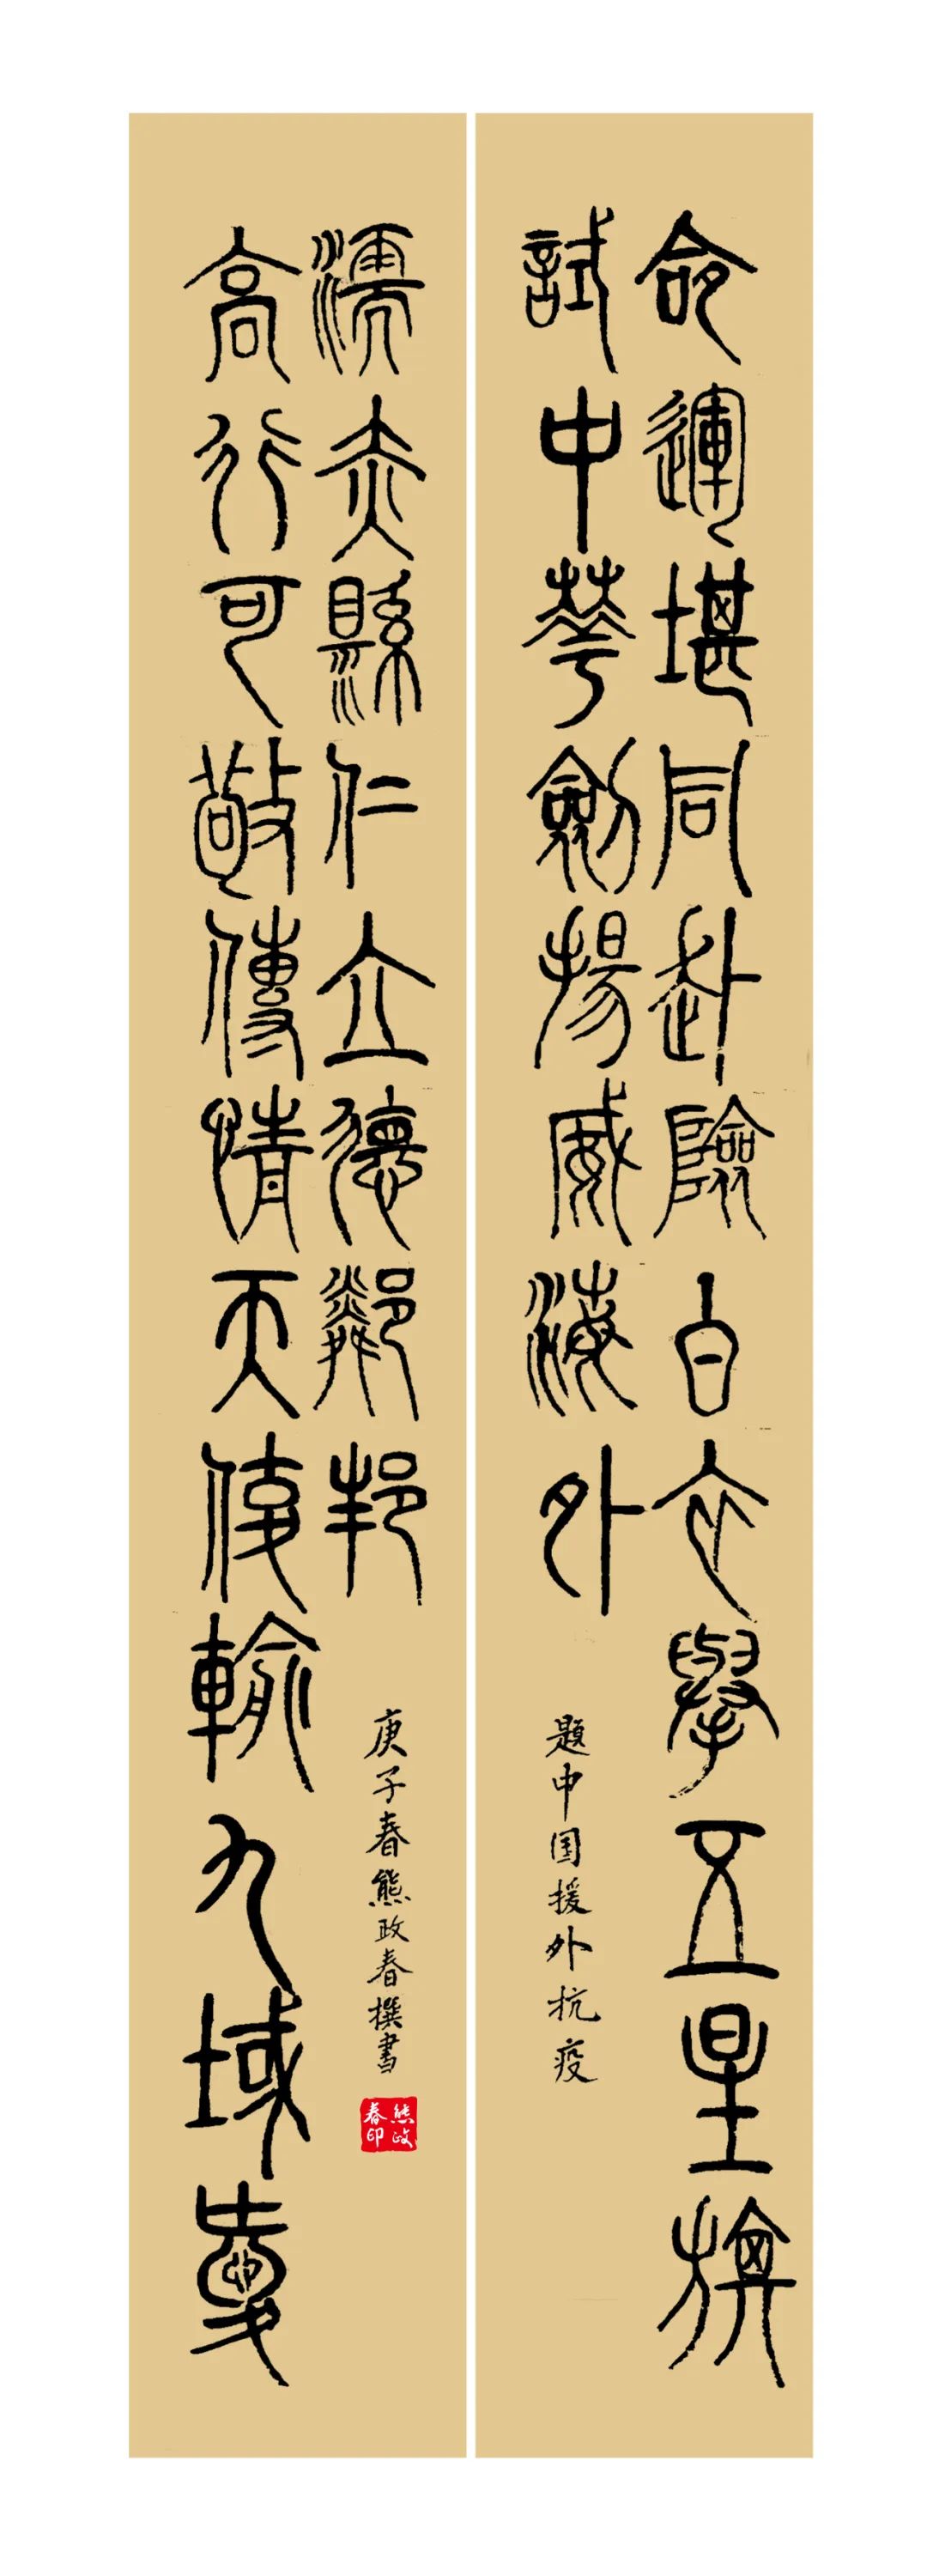 命運堪同赴險白衣舉五星旗
試中華劍揚威海外
题中国援外抗疫
高行可敬傳情天使輸九域愛
濡赤縣仁立德鄰邦
庚子春熊政春撰書
熊政春印